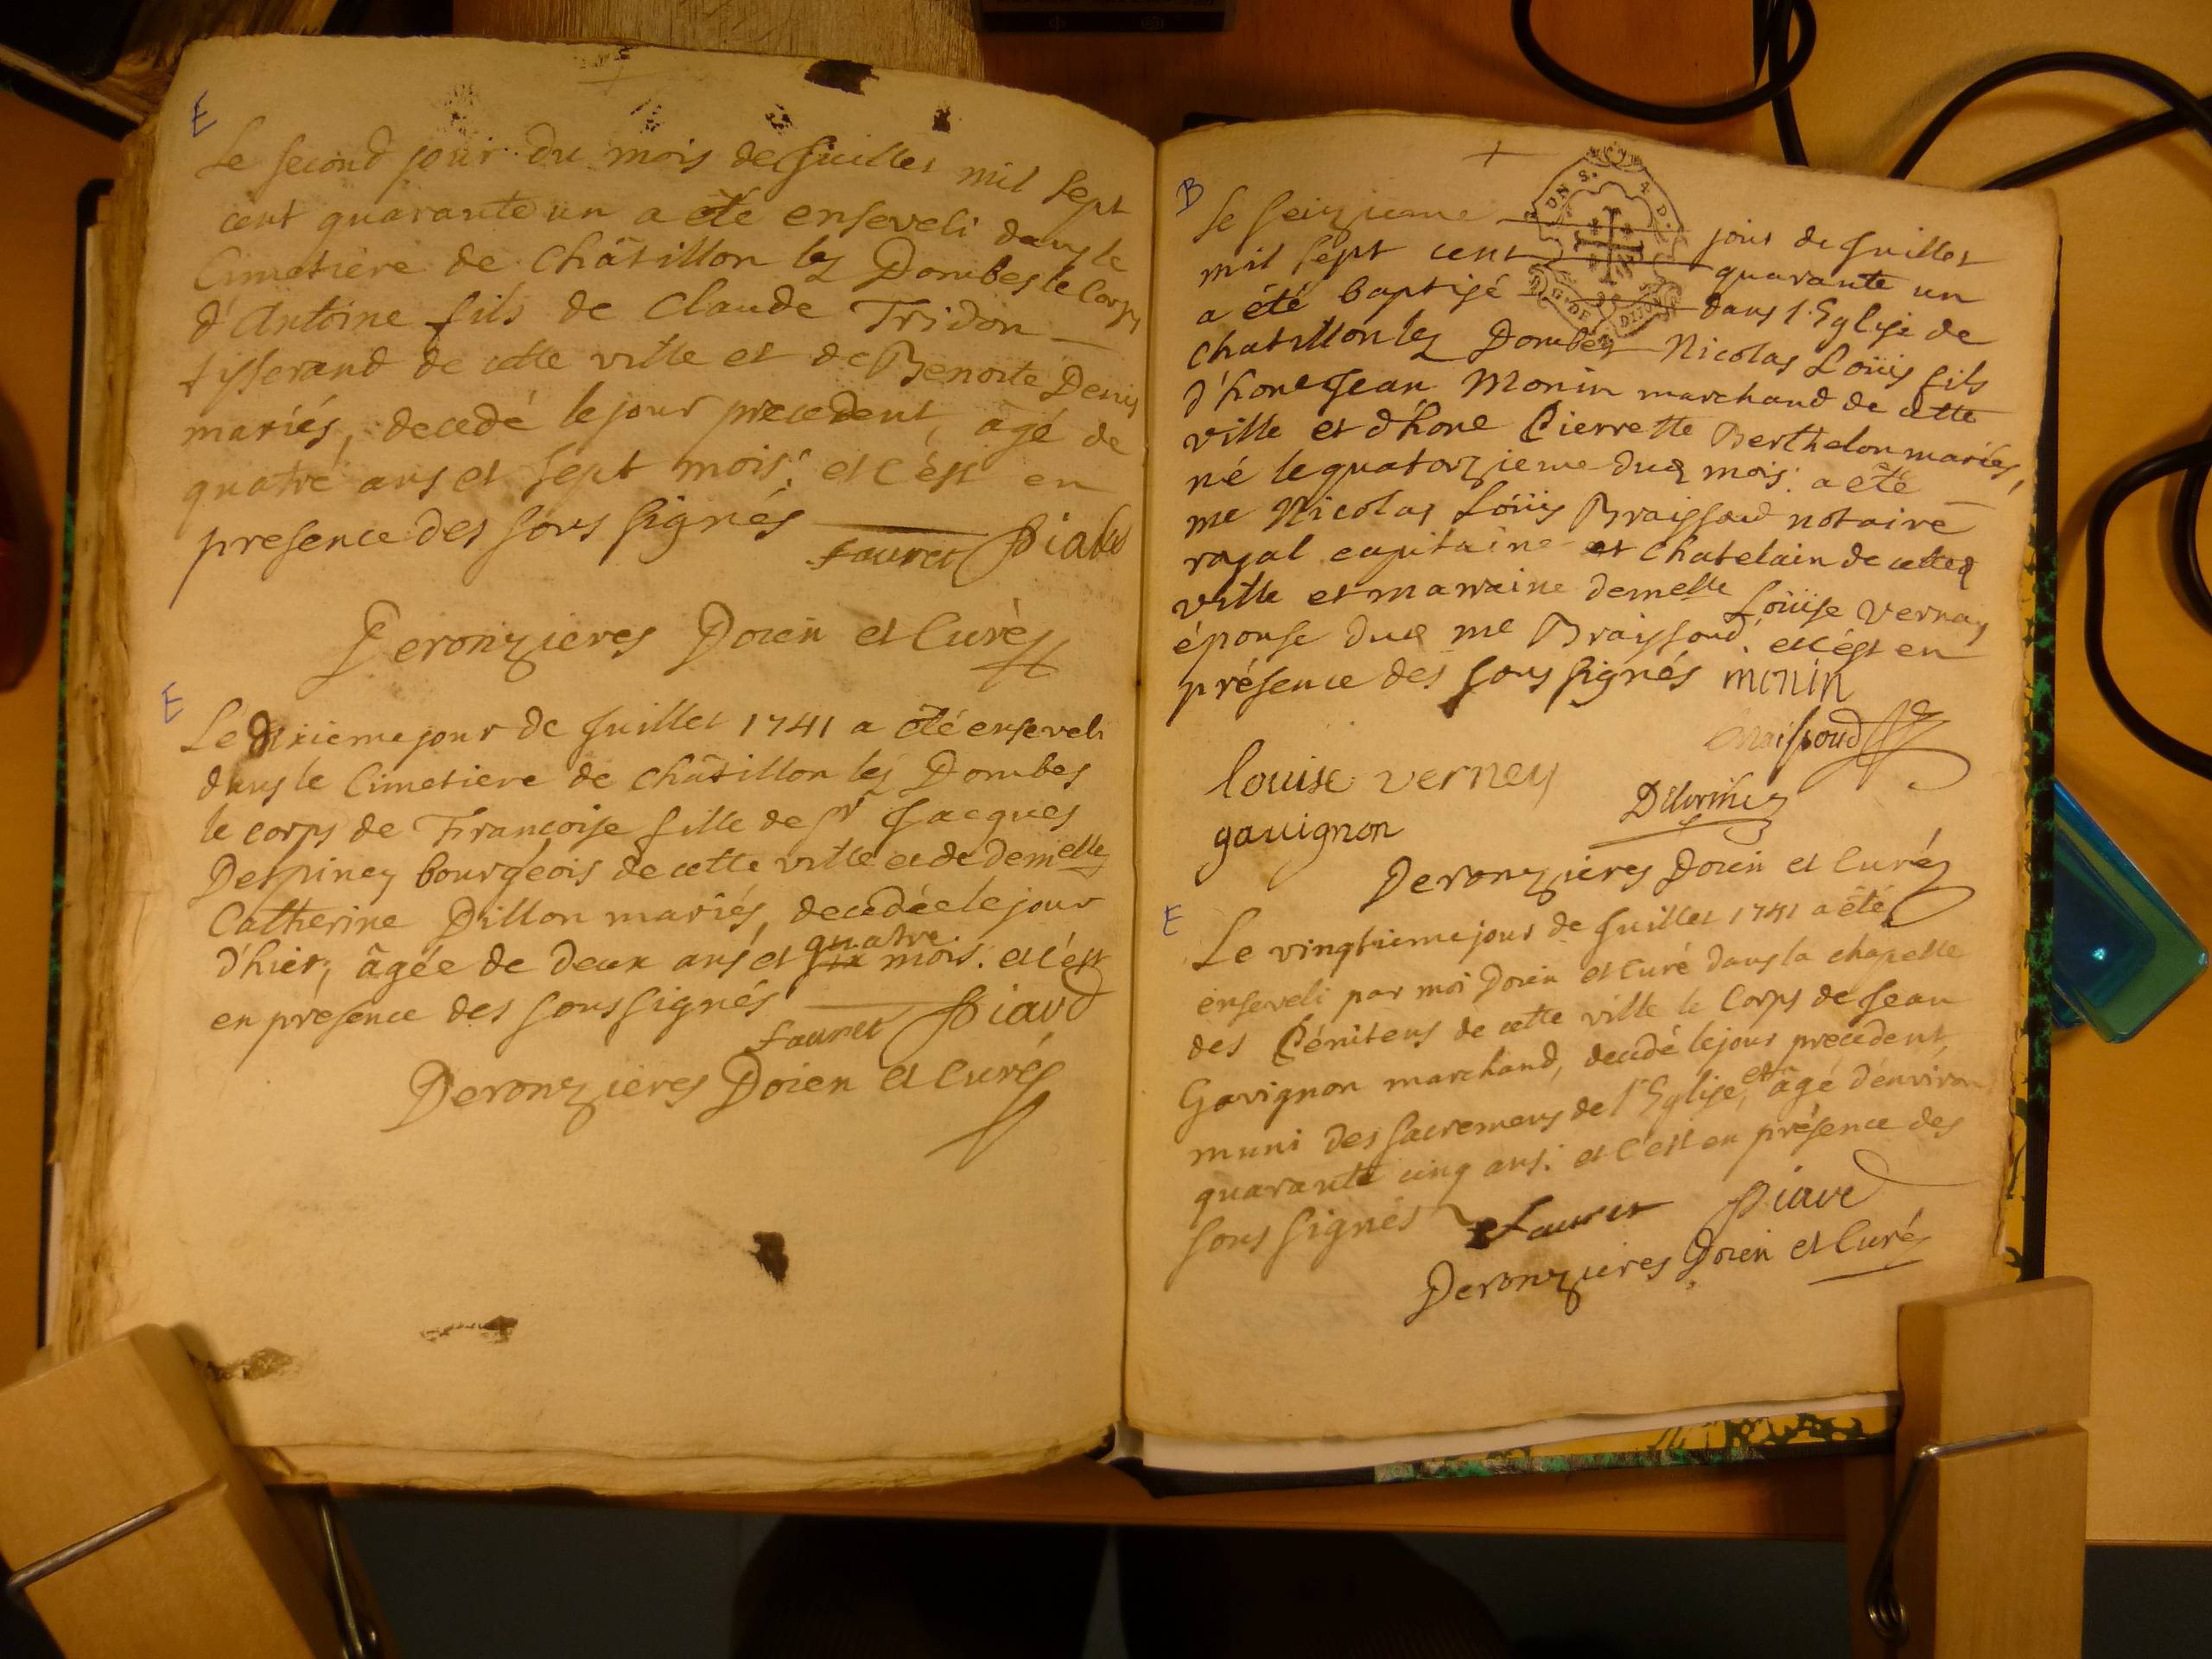 E
Le second jour du mois de Juillet mil sept
cent quarante un a été enseveli dans le
Cimetiere de Châtillon les Dombes le Corps
d'Antoine fils de Claude Tridon
tisserand de cette ville et de Benoite Denis
mariés, decedé le jour precedent, âgé de
quatre ans et sept mois. et c'est en
presence des sous signés
fauret
Deronzieres Doien et Curé
E
Le dixieme jour de Juillet 1741 a été enseveli
dans le Cimetiere de Châtillon les Dombes
le corps de Françoise fille de sr Jacques
Despiney bourgeois de cette ville et de demelle
Catherine Dillon mariés, decedée le jour
d'hier, âgée de deux ans et quatre mois. et c'est
en presence des sous signés
fauret
Deronzieres Doien et Curé
B
Le seizieme jour de Juillet
mil sept cent quarante un
a été baptisé dans l'Eglise de
Chatillon les Dombes Nicolas Loüis fils
d'hone Jean Monin marchand de cette
ville et d'hone Pierrette Berthelon mariés,
né le quatorzieme dud mois. a été
me Nicolas Loüis Braissoud notaire
royal capitaine et Chatelain de cetted
ville et marraine demelle Loüise Vernay
épouse dud me Braissoud. et c'est en
présence des sous signés monin
Braissoud
louise verney
gauignon
Deronzieres Doien et Curé
E
Le vingtieme jour de Juillet 1741 a été
enseveli par moi Doien et Curé dans la chapelle
des Pénitens de cette ville le Corps de Jean
Gavignon marchand, decedé le jour precedent,
muni des sacremens de l'Eglise, et âgé d'environ
quarante cinq ans. et c'est en présence des
sous signés fauret
Deronzieres Doien et Curé